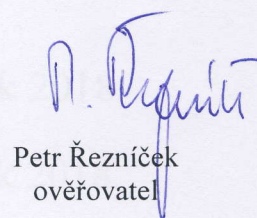 Petr Řezníček
ověřovatel